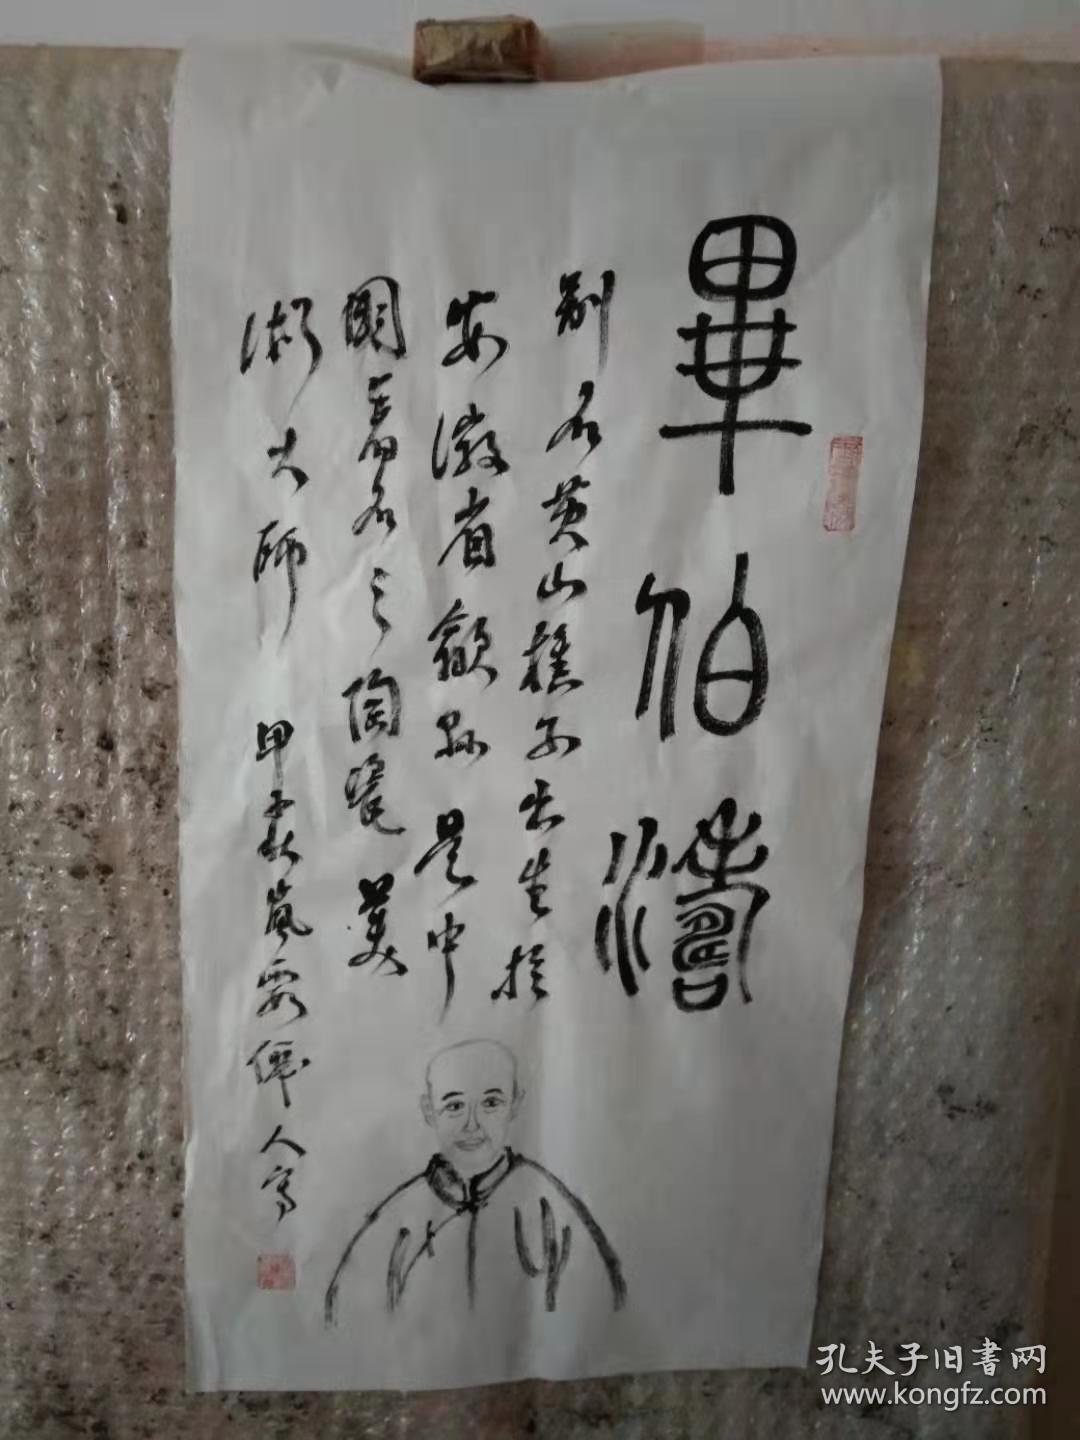 畢伯濤
別名黃山樵子出生於
安徽省歙縣是中
國著名之陶瓷美
術大師
甲辰秋嵐霞儒人寫
孔夫子旧書网
www.kongfz.com